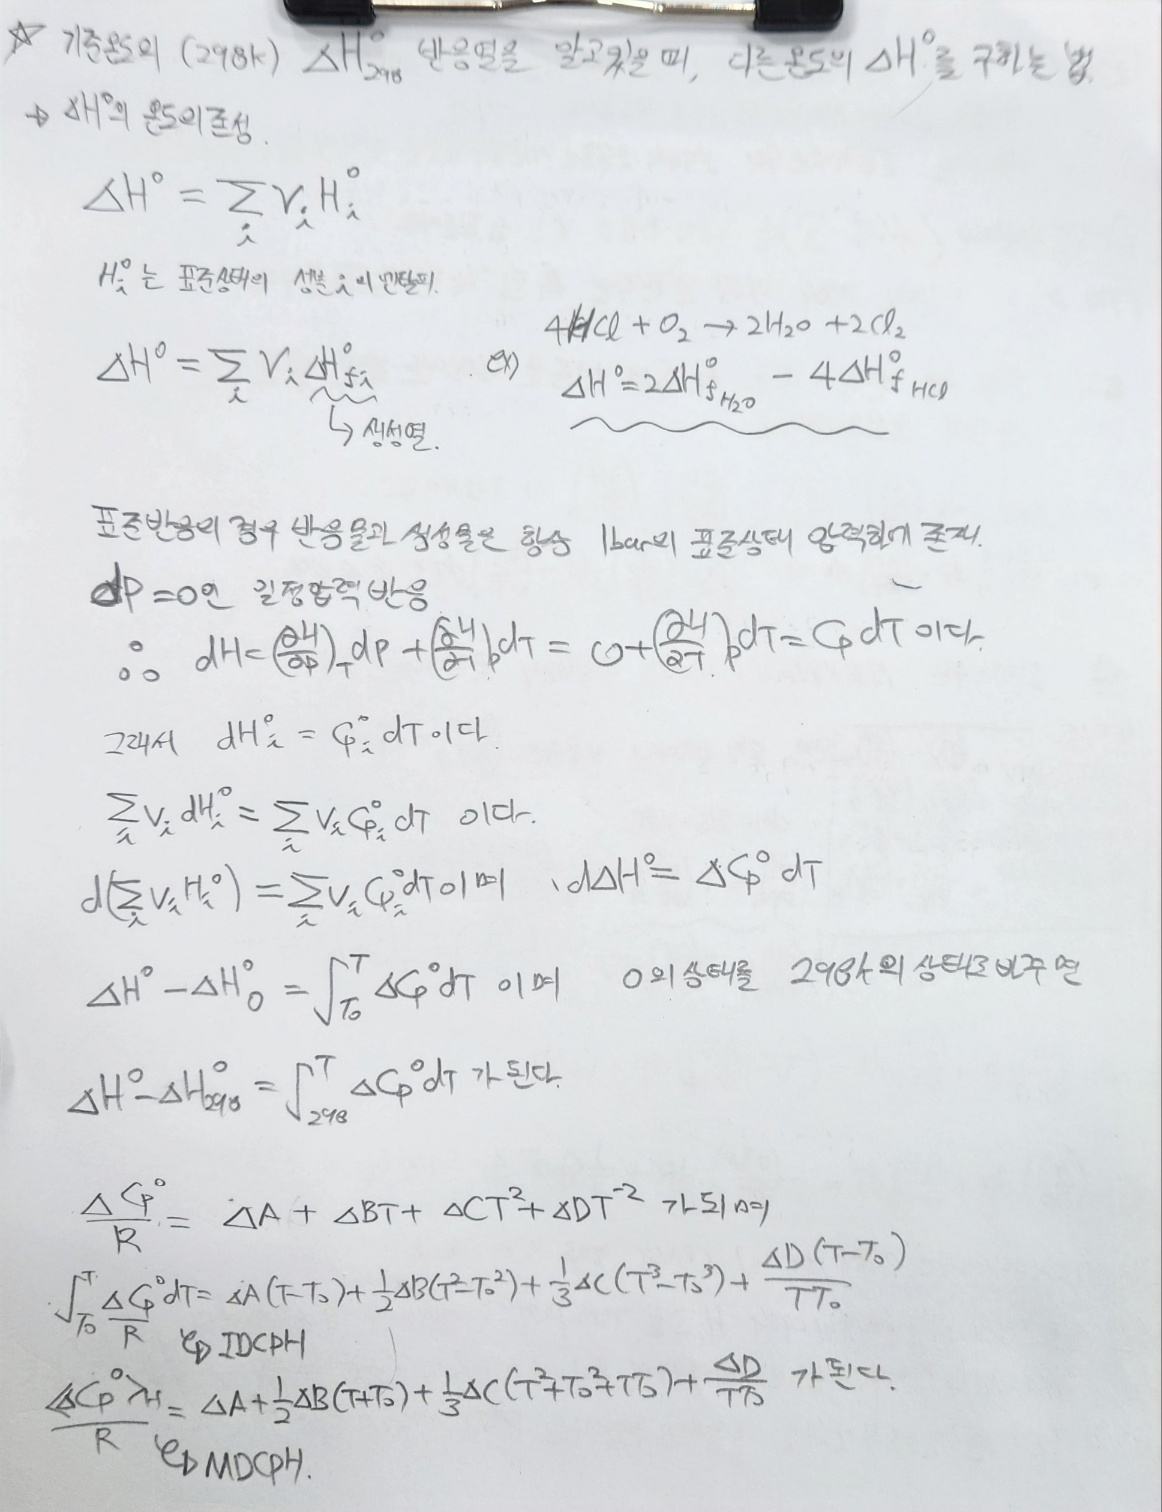 ☆ 기준온도의 (298k) ΔH°298 반응열을 알고있을 때, 다른온도의 ΔH°를 구하는 법.
→ ΔH°의 온도의존성.
ΔH° = Σi νi Hi°
Hi°는 표준상태의 성분 i의 엔탈피.
4HCl + O2 → 2H2O + 2Cl2
ΔH° = Σi νi ΔH°fi . ex) ΔH° = 2ΔH°fH2O - 4ΔH°fHCl
↳ 생성열.
표준반응의 경우 반응물과 생성물은 항상 1bar의 표준상태 압력하에 존재.
dP = 0인 일정압력 반응
∴ dH = (∂H/∂P)T dP + (∂H/∂T)P dT = 0 + (∂H/∂T)P dT = Cp dT 이다.
그래서 dHi° = Cp°i dT 이다.
Σi νi dHi° = Σi νi Cp°i dT 이다.
d(Σi νi Hi°) = Σi νi Cp°i dT 이며 , dΔH° = ΔCp° dT
ΔH° - ΔH°0 = ∫T0^T ΔCp° dT 이며 0의 상태를 298k의 상태로 바꾸면
ΔH° - ΔH°298 = ∫298^T ΔCp° dT 가 된다.
ΔCp°/R = ΔA + ΔBT + ΔCT² + ΔDT⁻² 가 되며
∫T0^T ΔCp°/R dT = ΔA(T-T0) + 1/2 ΔB(T²-T0²) + 1/3 ΔC(T³-T0³) + ΔD(T-T0)/TT0
↳ IDCPH
<ΔCp°>H/R = ΔA + 1/2 ΔB(T+T0) + 1/3 ΔC(T²+T0²+TT0) + ΔD/TT0 가 된다.
↳ MDCPH.